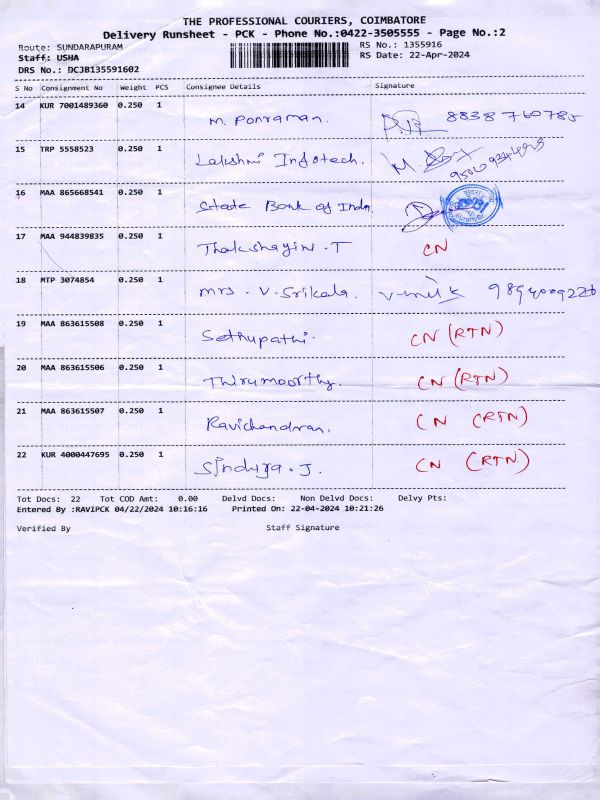 THE PROFESSIONAL COURIERS, COIMBATORE
Delivery Runsheet - PCK - Phone No.:0422-3505555 - Page No.:2
Route: SUNDARAPURAM RS No.: 1355916
Staff: USHA RS Date: 22-Apr-2024
DRS No.: DCJB135591602
S No Consignment No Weight PCS Consignee Details Signature
14 KUR 7001489360 0.250 1 M. Ponraman. 8838760785
15 TRP 5558523 0.250 1 Lakshmi Infotech.
16 MAA 865668541 0.250 1 State Bank of India.
17 MAA 944839835 0.250 1 Thakshayini. T CN
18 MTP 3074854 0.250 1 Mrs. V. Srikala.
19 MAA 863615508 0.250 1 Sethupathi. CN (RTN)
20 MAA 863615506 0.250 1 Thirumoorthy. CN (RTN)
21 MAA 863615507 0.250 1 Ravichandran. CN (RTN)
22 KUR 4000447695 0.250 1 Sindyja. J. CN (RTN)
Tot Docs: 22 Tot COD Amt: 0.00 Delvd Docs: Non Delvd Docs: Delvy Pts:
Entered By :RAVIPCK 04/22/2024 10:16:16 Printed On: 22-04-2024 10:21:26
Verified By Staff Signature